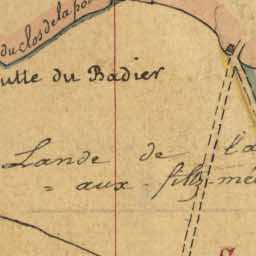 du clos de la po
utte du Badier
Lande de la
= aux-fillz-mé